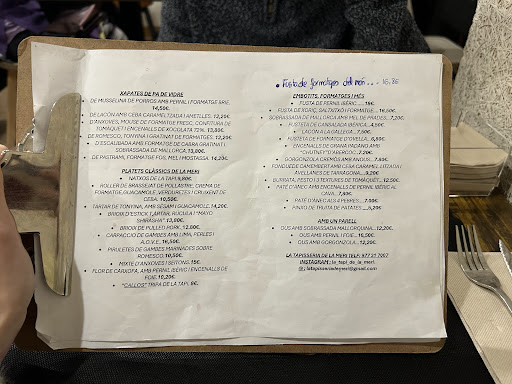 XAPATES DE PA DE VIDRE
• DE MUSSELINA DE PORROS AMB PERNIL I FORMATGE BRIE.
14,50€.
• DE LACÓN AMB CEBA CARAMEL·LITZADA I AMETLLES. 12,20€.
• D'ANXOVES, MOUSE DE FORMATGE FRESC, CONFITURA DE
TOMAQUET I ENCENALLS DE XOCOLATA 72%. 13,00€.
• DE ROMESCO, TONYINA I GRATINAT DE FORMATGES. 12,20€.
• D'ESCALIBADA AMB FORMATGE DE CABRA GRATINAT I
SOBRASSADA DE MALLORCA. 13,20€.
• DE PASTRAMI, FORMATGE FOS, MEL I MOSTASSA. 14,20€.
PLATETS CLÀSSICS DE LA MERI
• NATXOS DE LA TAPI. 9,80€.
• ROLLER DE BRASSEAT DE POLLASTRE, CREMA DE
FORMATGE, GUACAMOLE, VERDURETES I CRUIXENT DE
CEBA. 10,50€.
• TARTAR DE TONYINA, AMB SÈSAM I GUACAMOLE. 14,20€.
• BRIOIX D'ESTICK TARTAR, RUCULA I "MAYO
SHIRASHA" 13,00€.
• BRIOIX DE PULLED PORK. 12,00€.
• CARPACCIO DE GAMBES AMB LIMA, PERLES I
A.O.V.E. 16,50€.
• PIRULETES DE GAMBES MARINADES SOBRE
ROMESCO. 10,50€.
• MIXTE D'ANXOVES I SEITONS. 15€.
• FLOR DE CARXOFA, AMB PERNIL IBÈRIC I ENCENALLS DE
FOIE. 10,20€.
• "CALLOS" TRIPA DE LA TAPI. 9€.
• Fusta de formatges del món .... 16.80
EMBOTITS, FORMATGES I MÉS
• FUSTA DE PERNIL IBÈRIC...... 19€.
• FUSTA DE XORIÇ, SALTXITXÓ I FORMATGE.... 16,50€.
• SOBRASSADA DE MALLORCA AMB MEL DE PRADES... 7,20€.
• FUSTETA DE CANSALADA IBÈRICA.... 4,50€.
• LACÓN A LA GALLEGA.... 7,50€.
• FUSTETA DE FORMATGE D'OVELLA... 6,80€.
• ENCENALLS DE GRANA PADANO AMB
"CHUTNEY" D'ABERCOC... 7,20€.
• GORGONZOLA CREMÓS AMB ANOUS... 7,80€.
• FONDUE DE CAMEMBERT AMB CEBA CARAMEL·LITZADA I
AVELLANES DE TARRAGONA... 9,20€.
• BURRATA, PESTO I 3 TEXTURES DE TOMÀQUET... 12,50€.
• PATÉ D'ÀNEC AMB ENCENALLS DE PERNIL IBÈRIC AL
CAVA.. 7,80€.
• PATÉ D'ÀNEC ALS 4 PEBRES... 7,00€.
• PINXO DE TRUITA DE PATATES .... 5,20€.
AMB UN PARELL
• OUS AMB SOBRASSADA MALLORQUINA.... 12,20€.
• OUS AMB PERNIL I FOIE... 16,50€.
• OUS AMB GORGONZOLA... 12,20€.
LA TAPISSERIA DE LA MERI TELF: 977 21 7067
INSTAGRAM : la_tapi_de_la_meri.
@: latapisseriademeri@gmail.com